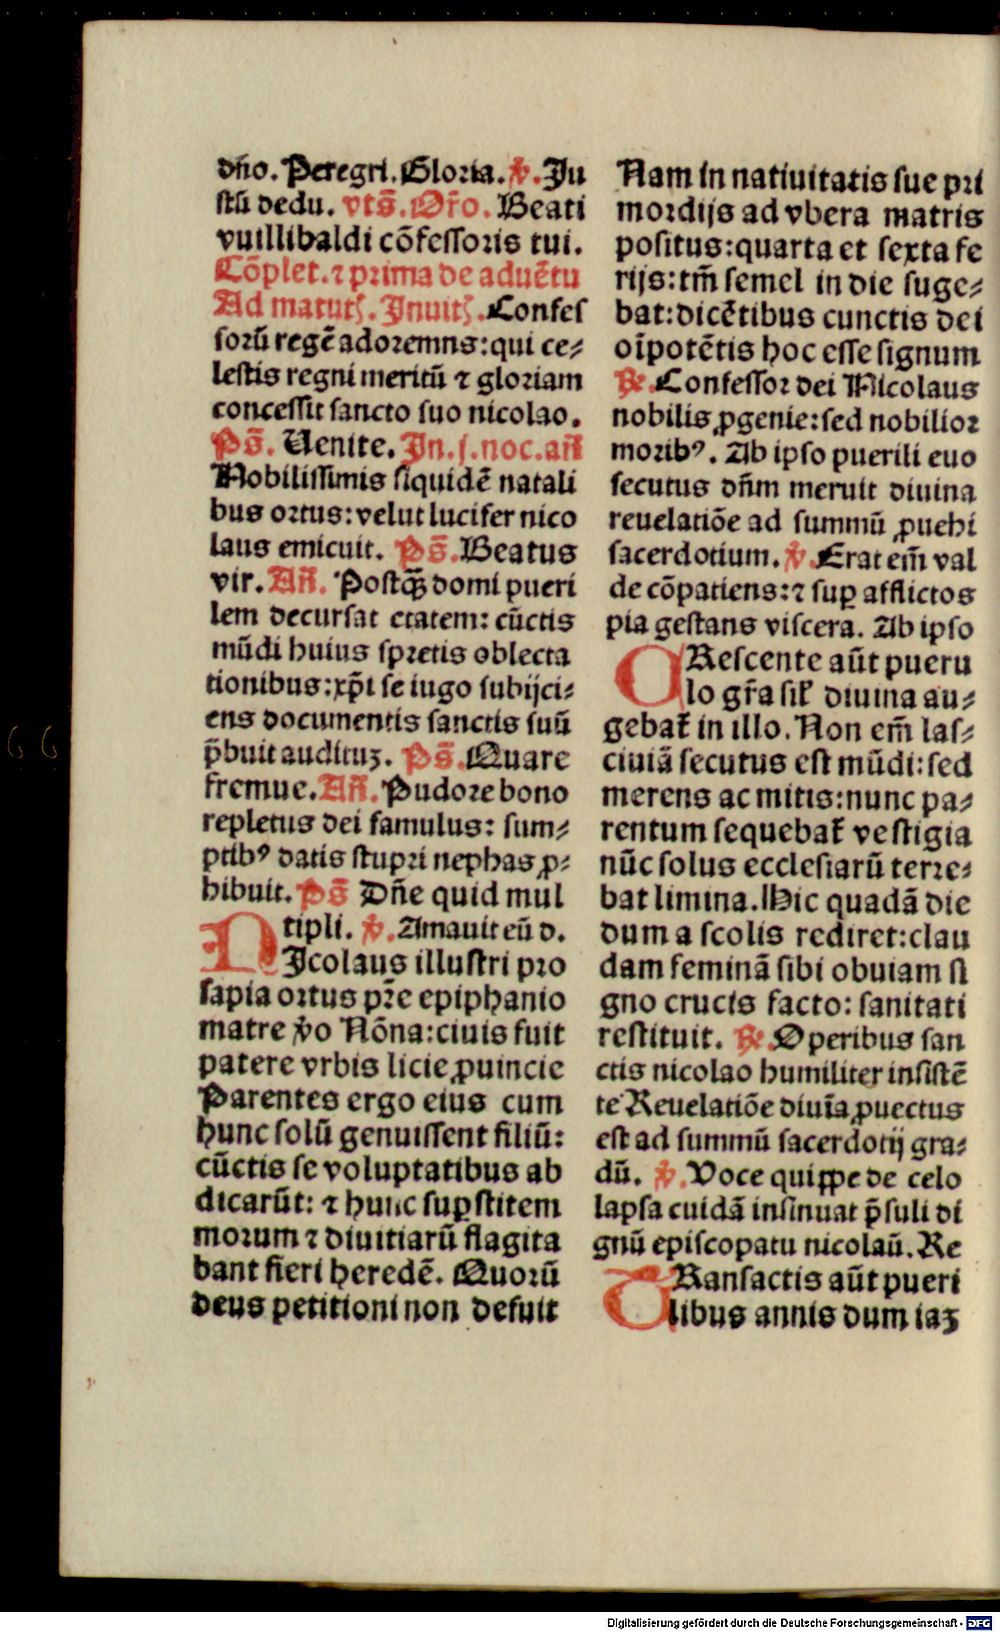 dño. Peregri. Gloria. ℣. Ju
stū dedu. vts̄. Or̄o. Beati
vuillibaldi cōfessoris tui.
Cōplet. ⁊ prima de aduētu
Ad matutꝭ. Inuitꝭ. Confes
sorū regē adoremns: qui ce⸗
lestis regni meritū ⁊ gloriam
concessit sancto suo nicolao.
Ps̄. Uenite. In. j. noc. añ
Nobilissimis siquidē natali
bus ortus: velut lucifer nico
laus emicuit. Ps̄. Beatus
vir. Añ. Postq̄ꝫ domi pueri
lem decursat etatem: cūctis
mūdi huius spretis oblecta
tionibus: xp̄i se iugo subijci⸗
ens documentis sanctis suū
p̄buit audituꝫ. Ps̄. Quare
fremue. Añ. Pudore bono
repletus dei famulus: sum⸗
ptibꝰ datis stupri nephas ꝓ⸗
hibuit. Ps̄ Dñe quid mul
tipli. ℣. Amauit eū d.
NIcolaus illustri pro
sapia ortus pr̄e epiphanio
matre v̊o Nōna: ciuis fuit
patere vrbis licie ꝓuincie
Parentes ergo eius cum
hunc solū genuissent filiū:
cūctis se voluptatibus ab
dicarūt: ⁊ hunc suꝑstitem
morum ⁊ diuitiarū flagita
bant fieri heredē. Quorū
deus petitioni non defuit
Nam in natiuitatis sue pri
mordijs ad vbera matris
positus: quarta et sexta fe
rijs: tm̄ semel in die suge⸗
bat: dicētibus cunctis dei
oīpotētis hoc esse signum
℟. Confessor dei Nicolaus
nobilis ꝓgenie: sed nobilior
moribꝰ. Ab ipso puerili euo
secutus dñm meruit diuina
reuelatiōe ad summū ꝓuehi
sacerdotium. ℣. Erat em̄ val
de cōpatiens: ⁊ suꝑ afflictos
pia gestans viscera. Ab ipso
CRescente aūt pueru
lo gr̄a sil̄ diuina au⸗
gebat̄ in illo. Non em̄ las⸗
ciuiā secutus est mūdi: sed
merens ac mitis: nunc pa⸗
rentum sequebat̄ vestigia
nūc solus ecclesiarū terre⸗
bat limina. Hic quadā die
dum a scolis rediret: clau
dam feminā sibi obuiam si
gno crucis facto: sanitati
restituit. ℟. Operibus san
ctis nicolao humiliter insistē
te Reuelatiōe diuīa ꝓuectus
est ad summū sacerdotij gra⸗
dū. ℣. Voce quippe de celo
lapsa cuidā insinuat p̄suli di
gnū episcopatu nicolaū. Re
TRansactis aūt pueri
libus annis dum iaꝫ
66
Digitalisierung gefördert durch die Deutsche Forschungsgemeinschaft - DFG